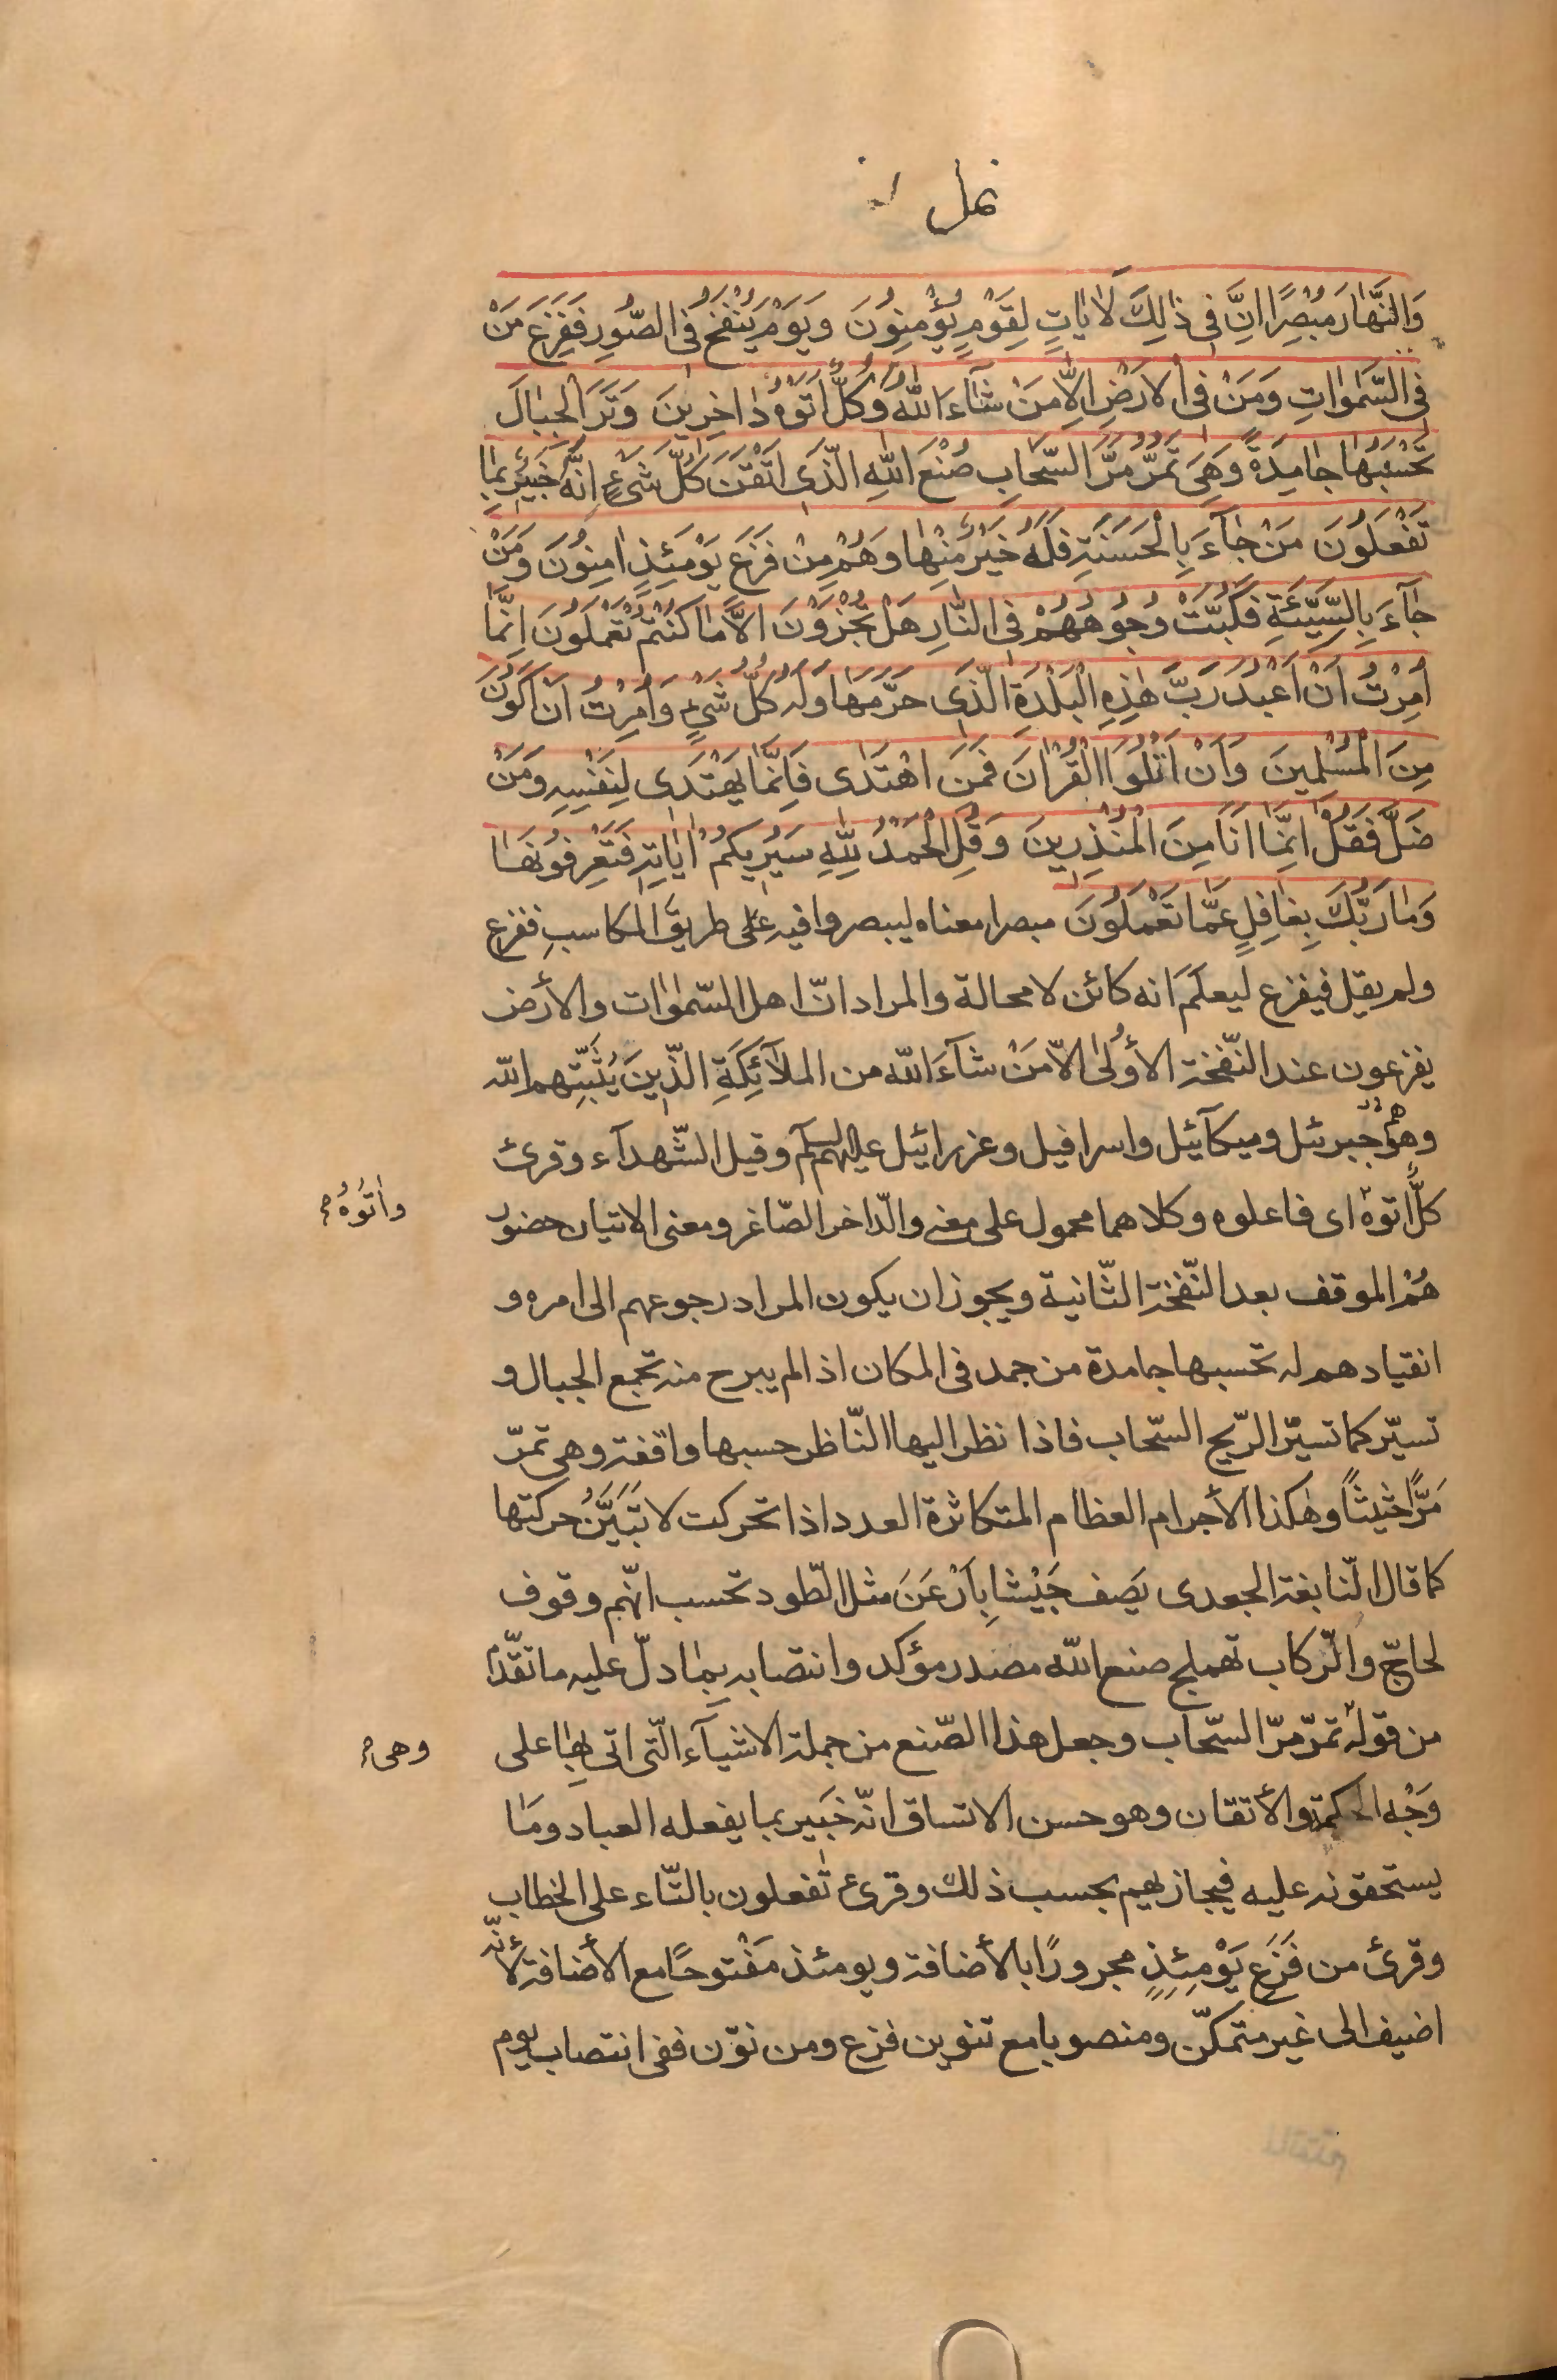 نمل
وَالنَّهَارَ مُبْصِرًا اِنَّ فِى ذٰلِكَ لَاٰيَاتٍ لِقَوْمٍ يُؤْمِنُونَ وَيَوْمَ يُنْفَخُ فِى الصُّورِ فَفَزِعَ مَنْ
فِى السَّمٰوَاتِ وَمَنْ فِى الْاَرْضِ اِلَّا مَنْ شَآءَ اللّٰهُ وَكُلٌّ اَتَوْهُ دٰاخِرِينَ وَتَرَ الْجِبٰالَ
تَحْسَبُهٰا جٰامِدَةً وَهِىَ تَمُرُّ مَرَّ السَّحَابِ صُنْعَ اللّٰهِ الَّذِى اَتْقَنَ كُلَّ شَىْءٍ اِنَّهُ خَبِيرٌ بِمٰا
تَفْعَلُونَ مَنْ جٰآءَ بِالْحَسَنَةِ فَلَهُ خَيْرٌ مِنْهٰا وَهُمْ مِنْ فَزَعٍ يَوْمَئِذٍ اٰمِنُونَ وَمَنْ
جٰآءَ بِالسَّيِّئَةِ فَكُبَّتْ وُجُوهُهُمْ فِى النّٰارِ هَلْ تُجْزَوْنَ اِلَّا مٰا كُنْتُمْ تَعْمَلُونَ اِنَّمٰا
اُمِرْتُ اَنْ اَعْبُدَ رَبَّ هٰذِهِ الْبَلْدَةِ الَّذِى حَرَّمَهٰا وَلَهُ كُلُّ شَىْءٍ وَاُمِرْتُ اَنْ اَكُونَ
مِنَ الْمُسْلِمِينَ وَاَنْ اَتْلُوَا الْقُرْاٰنَ فَمَنِ اهْتَدٰى فَاِنَّمٰا يَهْتَدِى لِنَفْسِهِ وَمَنْ
ضَلَّ فَقُلْ اِنَّمٰا اَنَا مِنَ الْمُنْذِرِينَ وَقُلِ الْحَمْدُ لِلّٰهِ سَيُرِيكُمْ اٰيٰاتِهِ فَتَعْرِفُونَهٰا
وَمٰا رَبُّكَ بِغٰافِلٍ عَمّٰا تَعْمَلُونَ مبصرا معناه ليبصروا فيه على طريق المكاسب ففزع
ولم يقل فيفزع ليعلم انه كائن لا محالة والمراد انّ اهل السّمٰوٰات والأرض
يفزعون عند النّفخة الأولىٰ الّا مَنْ شآءَ اللّه من الملآئكَةِ الّذينَ يُثَبِّتهم اللّه
وهم جبرئل وميكآئيل واسرافيل وعزرائيل عليهم السلم وقيل الشّهدآء وقرئ
كلٌّ اتوه اى فاعلوه وكلاهما محمول على معنى والدّاخر الصّاغر ومعنى الاتيان حضور
واٰتُوُهُ م
هُمْ الموقف بعد النّفخة الثّانية ويجوز ان يكون المراد رجوعهم الى امره و
انقيادهم له تحسبها جامدة من جمد فى المكان اذا لم يبرح منه تجمع الجبال و
تسيّر كما تسيّر الرّيح السّحاب فاذا نظر اليها النّاظر حسبها واقفة وهى تمرّ
مَرًّا حثيثاً وهٰكذا الأجرام العظام المتكاثرة العدد اذا تحركت لا تَتَبَيَّنُ حركتها
كما قال النّابغة الجعدى يَصف جَيْشا بِاَرْعَنَ مثل الطّود تحسب انّهم وقوف
لحاجّ والرّكاب تهملج صنع اللّه مصدر مؤكد وانتصابه بِمٰا دلّ عليه ما تقدّم
من قوله تمرّ مرّ السّحاب وجعل هذا الصّنع من جملة الاشيآء الّتى اتى بِهٰا على
وهى م
وَجْه الحكمة والأتقان وهو حسن الاتساق انّه خَبَير بما يفعله العباد ومَا
يستحقونه عليه فيجازيهم بحسب ذلك وقرئ تفعلون بالتّاء على الخطاب
وقرئ من فَزَعِ يَوْمِئِذٍ مجرورًا بالأضافة ويومئذ مَفْتوحًا مع الأضافة لأنّه
اضيف الى غير متمكنّ ومنصوبا مع تنوين فزع ومن نوّن ففى انتصاب يوم